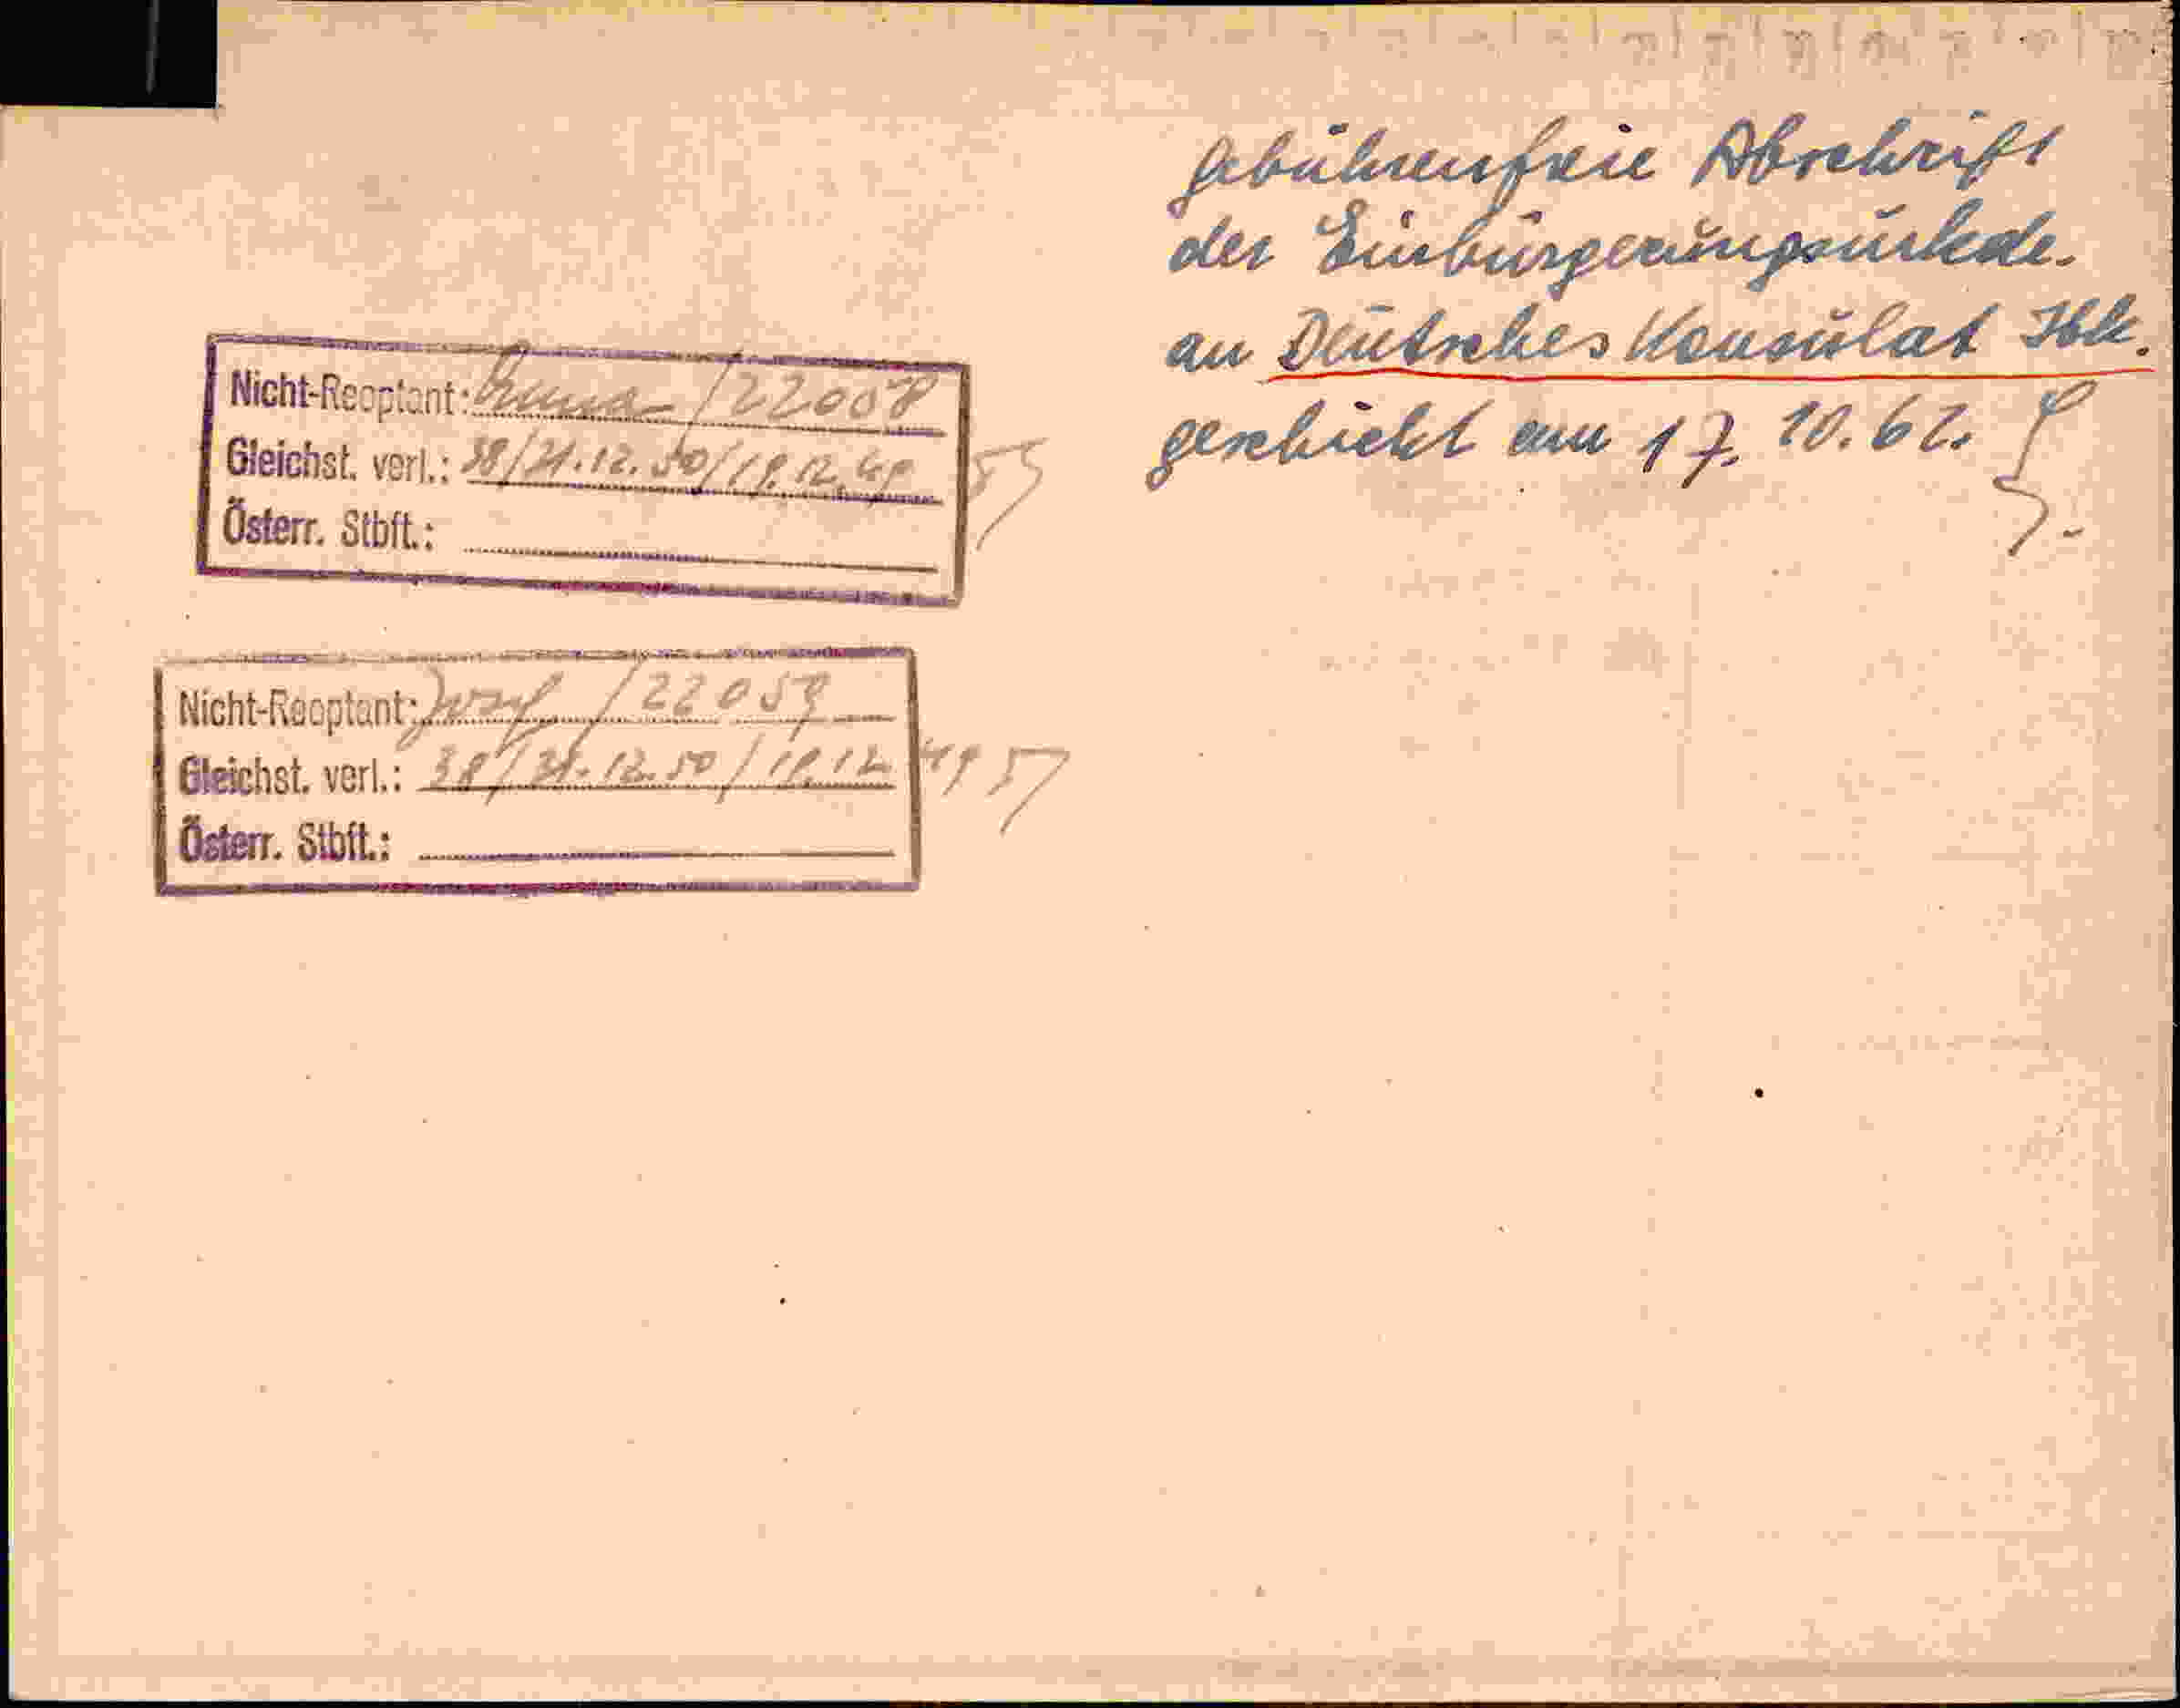 Gebührenfreie Abschrift
der Einbürgerungsurkde.
an Deutsches Konsulat Ibk.
geschickt am 17. 10. 62.
Nicht-Reoptant: / 22058
Gleichst. verl.: 38/21.12.50/19.12.49
Österr. Stbft.:
Nicht-Reoptant: Josef / 22059
Gleichst. verl.: 38/21.12.50/19.12.49 57
Österr. Stbft.: